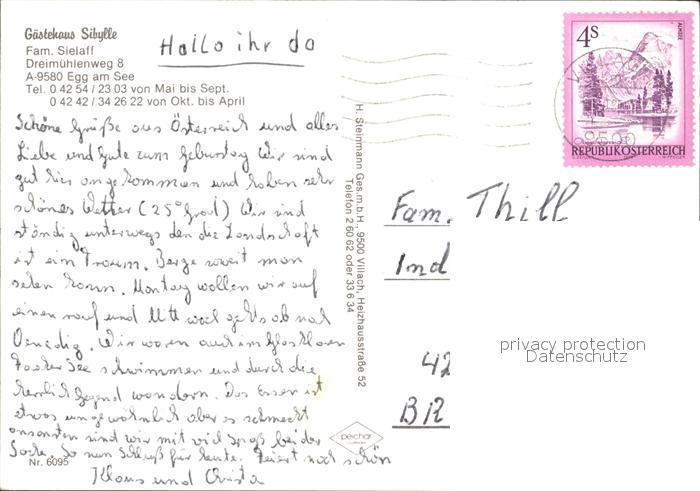 Gästehaus Sibylle
Fam. Sielaff
Dreimühlenweg 8
A-9580 Egg am See
Tel. 0 42 54 / 23 03 von Mai bis Sept.
0 42 42 / 34 26 22 von Okt. bis April
Hallo ihr da
Schöne Grüße aus Österreich und alles
Liebe und Gute zum Geburtstag Wir sind
gut hier angekommen und haben sehr
schönes Wetter (25° Grad) Wir sind
ständig unterwegs den die Landschaft
ist ein Traum. Berge soweit man
sehen kann. Montag wollen wir auf
einen rauf und Mittwoch gehts ab nach
Venedig. Wir waren auch im glasklaren
Faaker See schwimmen und durch die
herrlich Gegend wandern. Das Essen ist
etwas ungewöhnlich aber es schmeckt
ansonsten sind wir mit viel Spaß bei der
Sache. So nun Schluß für heute. Feiert noch schön
Klaus und Christa
Nr. 6095
H. Steinmann Ges.m.b.H., 9500 Villach, Heizhausstraße 52
Telefon 2 60 62 oder 33 6 34
peichar
4S
ALMSEE
REPUBLIK ÖSTERREICH
9500
Fam. Thill
Ind
42
BR
privacy protection
Datenschutz